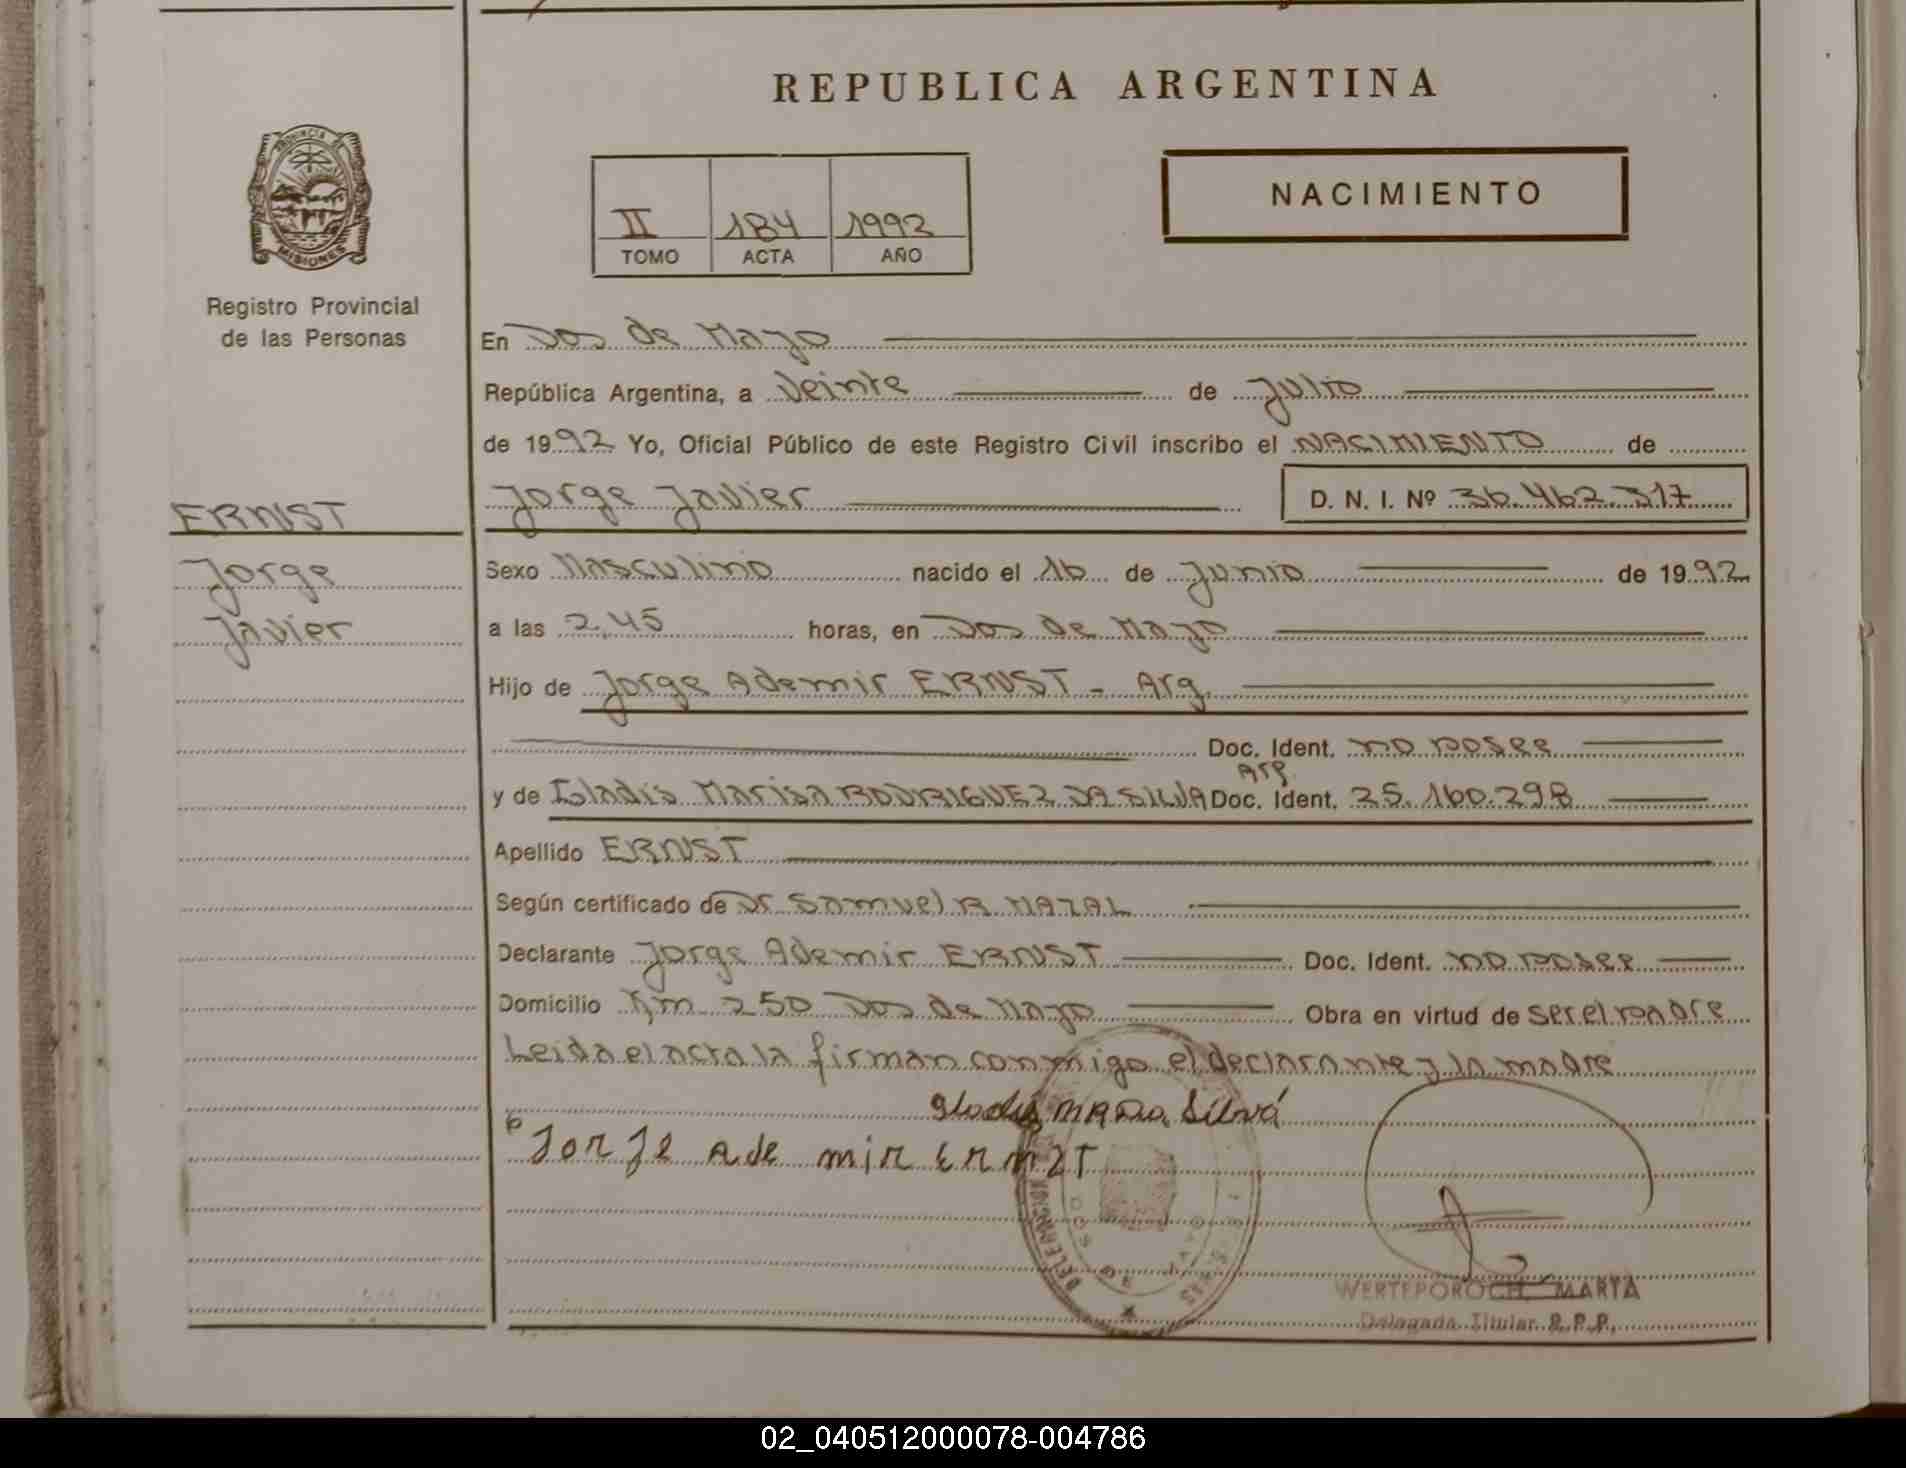 REPUBLICA ARGENTINA
PROVINCIA DE
MISIONES
Registro Provincial
de las Personas
II 184 1992
TOMO ACTA AÑO
NACIMIENTO
En Dos de Mayo
República Argentina, a Veinte de Julio
de 1992 Yo, Oficial Público de este Registro Civil inscribo el NACIMIENTO de
Jorge Javier D. N. I. Nº 36.462.317
ERNST
Jorge
Javier
Sexo Masculino nacido el 16 de Junio de 1992
a las 2,45 horas, en Dos de Mayo
Hijo de Jorge Ademir ERNST - Arg.
Doc. Ident. no posee
Arg.
y de Gladis Marisa RODRIGUEZ DA SILVA Doc. Ident. 25.160.298
Apellido ERNST
Según certificado de Dr Samuel R NAZAL
Declarante Jorge Ademir ERNST Doc. Ident. no posee
Domicilio Km 250 Dos de Mayo Obra en virtud de ser el padre
Leida el acta la firman conmigo el declarante y la madre
Silvá
JorJe Ade mir Ernzt
DOS DE MAYO
WERTEPOROCH, MARTA
Delegada Titular R.P.P.
02_040512000078-004786